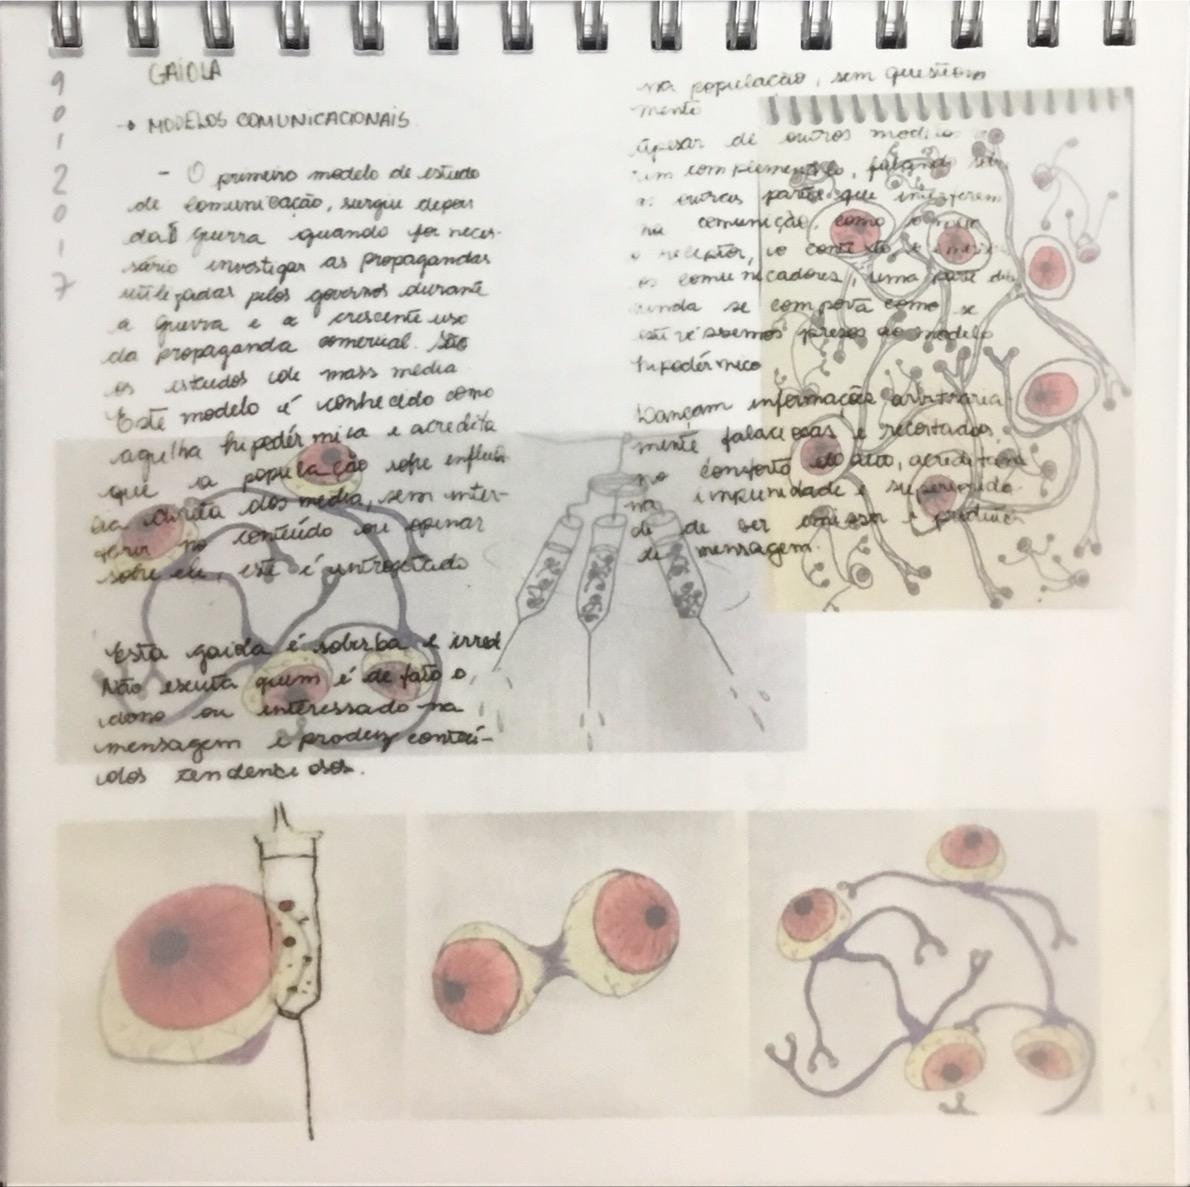 9
0
1
2
0
1
7
GAIOLA
→ MODELOS COMUNICACIONAIS
- O primeiro modelo de estudo
de comunicação, surgiu depois
da guerra quando foi neces-
sário investigar as propagandas
utilizadas pelos governos durante
a guerra e a crescente uso
da propaganda comercial. São
os estudos de mass media
Este modelo é conhecido como
agulha hipodérmica e acredita
que a população sofre influên
cia direta dos media, sem inter-
ferir no conteúdo ou opinar
sobre ele, este é introjetado
Esta gaiola é soberba e irred
Não escuta quem é de fato o,
dono ou interessado na
mensagem e produz conteú-
idos tendenciosos.
na população, sem questiona
mento
Apesar de outros modelos
um complemento, falando
as outras partes que interferem
na comunição, como o
o receptor, o contexto e
os comunicadores, uma parte
ainda se comporta como se
estivéssemos presos ao modelo
hipodérmico
Lançam informações arbitraria-
mente falaciosas e recortadas,
no conforto do, acreditam
na impunidade e superiorida-
de de ser emissor e produtor
de mensagem.